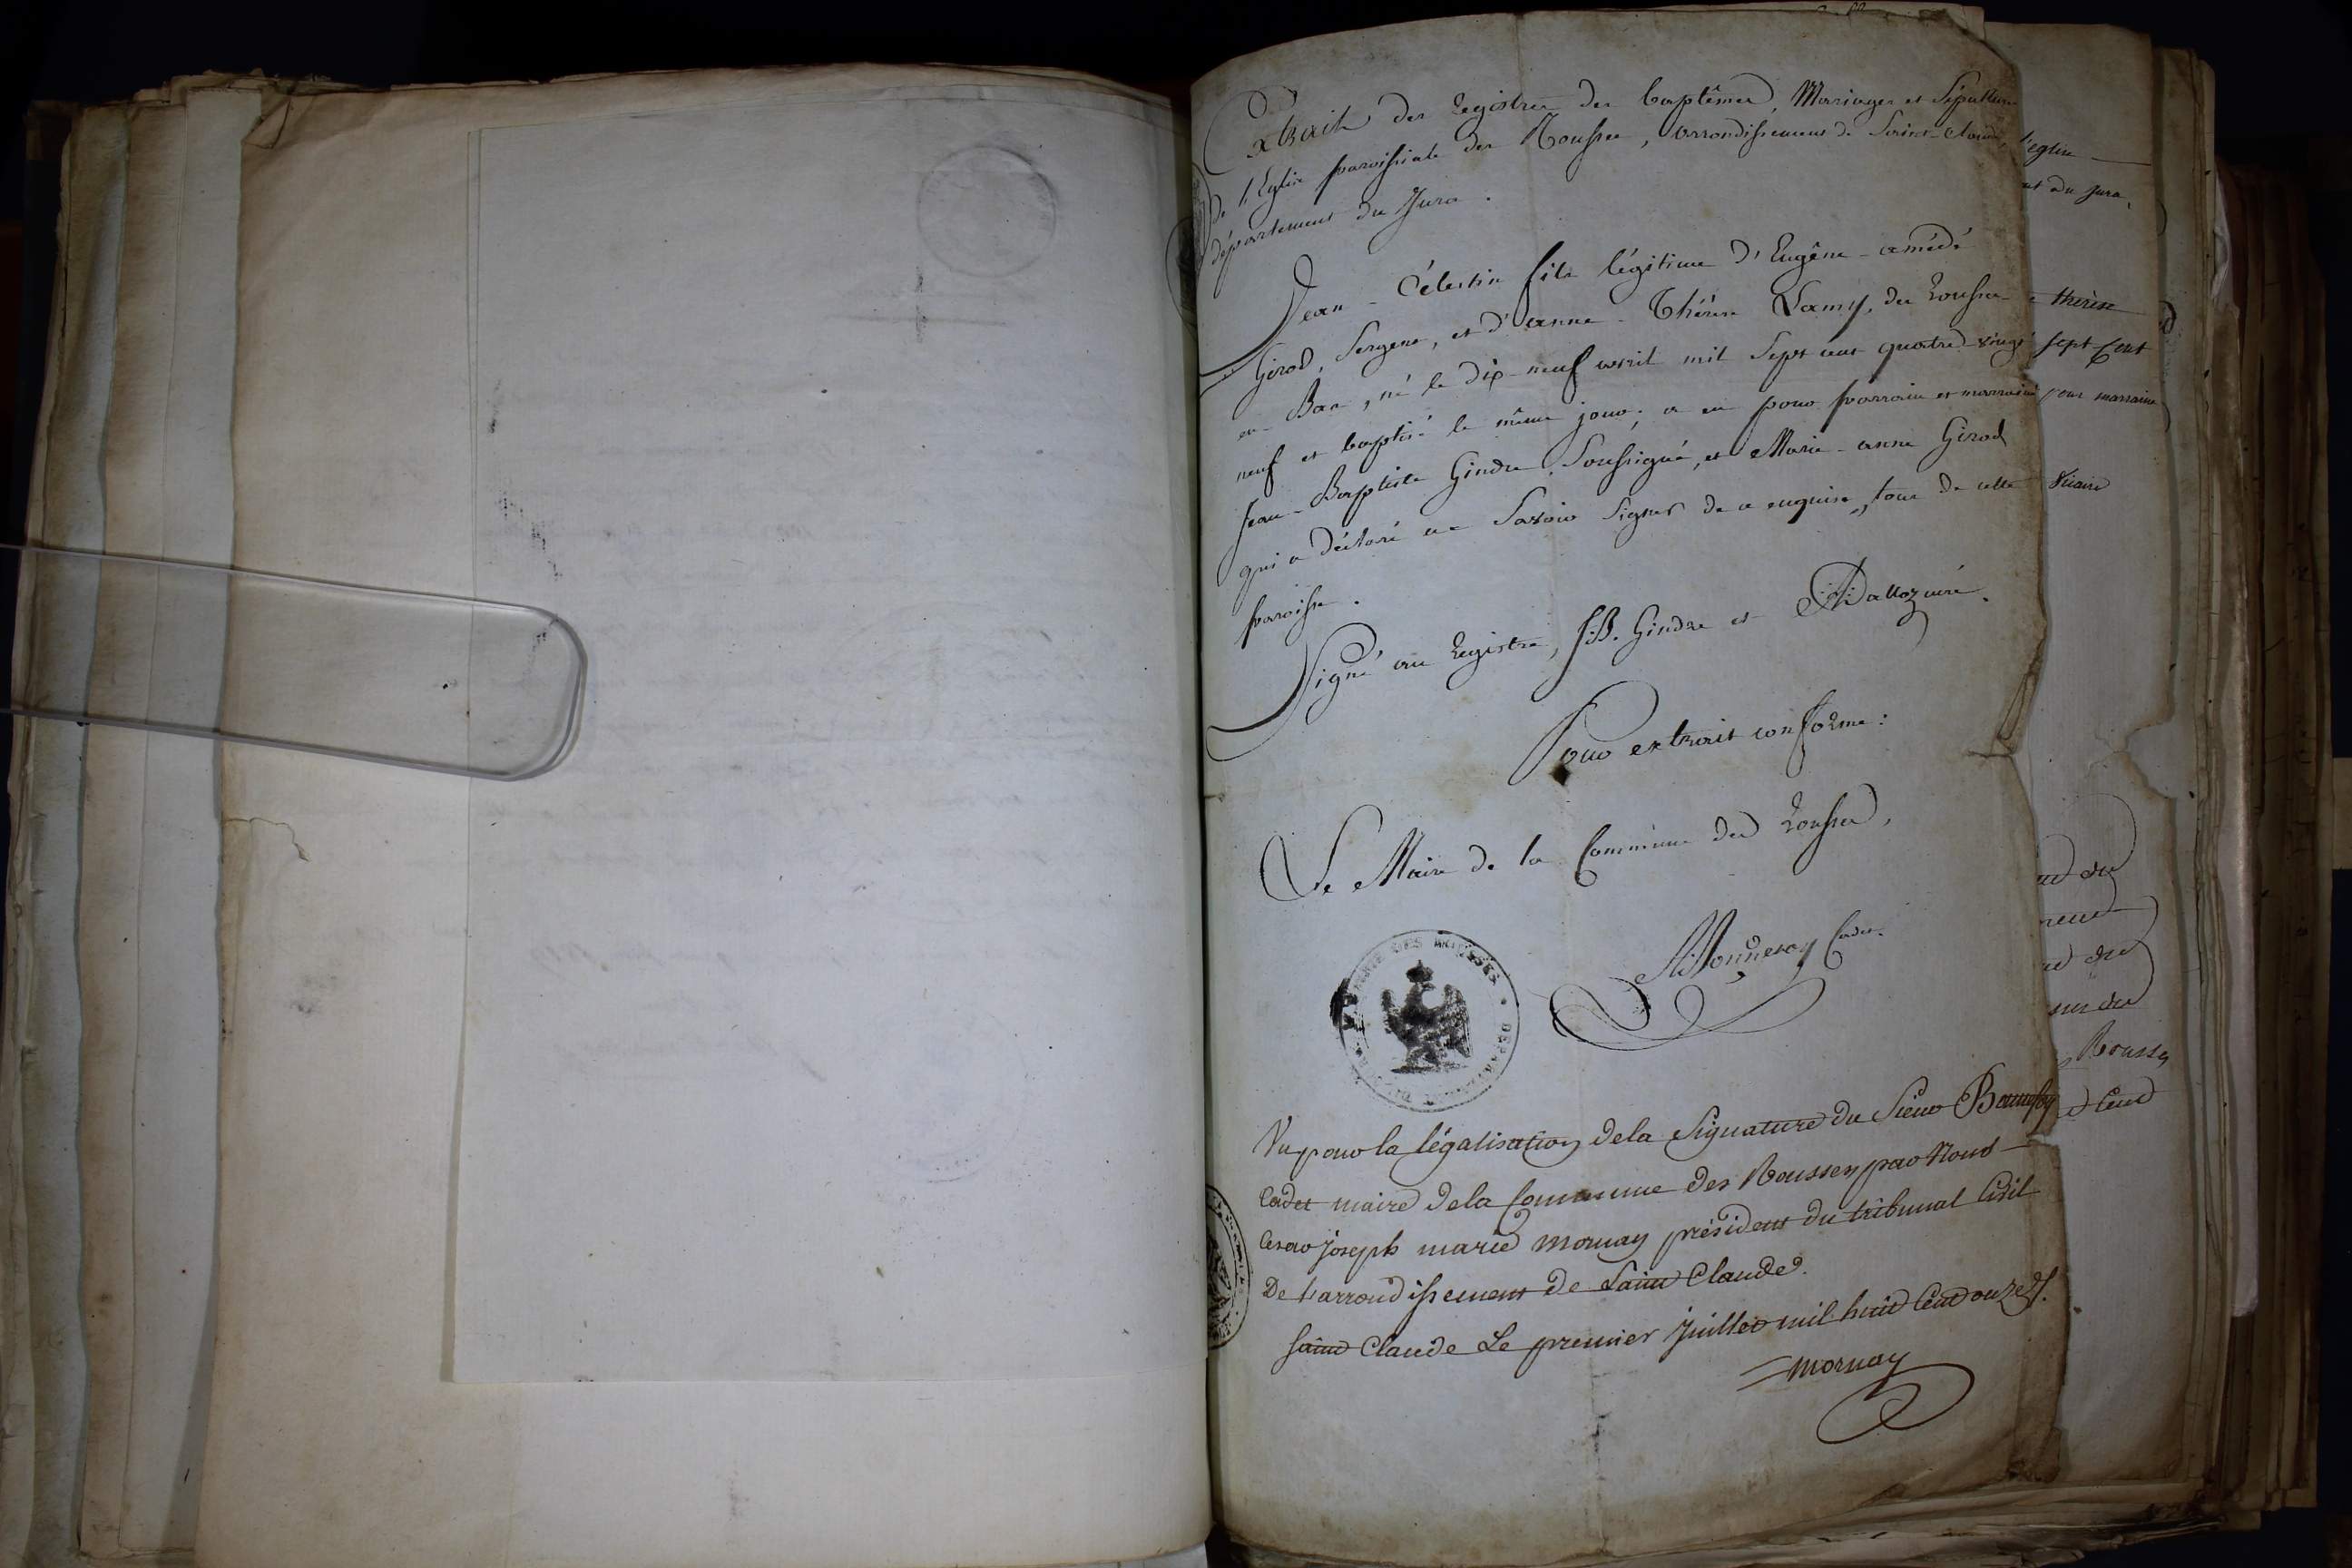 Extrait des registres des baptêmes, Mariages et Sépultures
de l'Eglise paroissiale des Rousses, arrondissement de Saint-Claude,
département du Jura.
Jean-Célestin fils légitime d'Eugêne-amédé
Girod, Sergene, et d'anne-Thérèse Lamy, des rousses
en Bas, né le dix-neuf avril mil sept cent quatre-vingt
neuf et baptisé le même jour; a eu pour parrain et marraine
Jean-Baptiste Gindre, soussigné, et Marie-anne Girod
qui a déclaré ne savoir signer de ce enquise, tous de cette
paroisse.
Signé au registre, J.B. Gindre et Dalloz curé.
Pour extrait conforme:
Le Maire de la Commune des rousses,
Cadet
MAIRIE DES ROUSSES * DEPARTEMENT DU JURA
Vu pour la légalisation de la Signature du Sieur
Cadet maire de la Commune des Rousses par Nous
Cesar joseph marie mornay président du tribunal Civil
De l'arrondissement de Saint Claude.
Saint Claude Le premier juillet mil huit Cent onze
mornay
l'eglise
du jura,
thérèse
sept Cent
pour marraine
Vicaire
Rousses
Cent